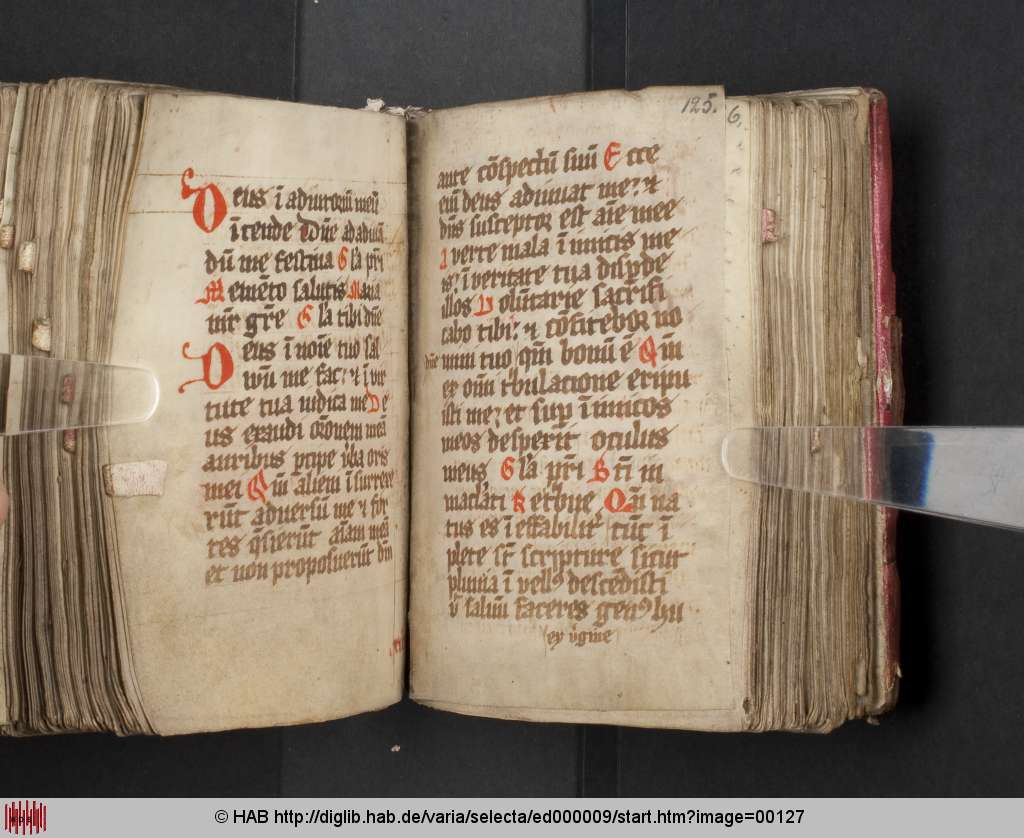 Deus ī adiutoriū meū
ītende Dn̄e ad adiuuā
dū me festina Gl̓a pr̄i
Memēto salutis Maria
mr̄ gr̄e Gl̓a tibi dn̄e
Deus ī noīe tuo sal
uū me fac: ⁊ ī vir
tute tua iudica me De
us exaudi or̄onem meā
auribus p̄cipe v̓ba oris
mei Qm̄ alieni īsurrexe
rūt aduersū me ⁊ for
tes q̄sierūt aīam meā
et non proposuerūt dm̄
125.
6.
ante cōspectū suū Ecce
eni deus adiuuat me: ⁊
dn̄s susceptor est aīe mee
Auerte mala īimicis me
is: ī veritate tua disp̄de
illos Volūtarie sacrifi
cabo tibi: ⁊ cōfitebor no
dn̄e mini tuo qm̄ bonū ē Qm̄
ex om̄i t̓bulacione eripu
isti me: et sup̄ īimicos
meos despexit oculus
meus Gl̓a pr̄i Sc̄i in
maclati Ret bn̄e Qn̄ na
tus es ī effabilit̓ tūc ī
plete st̄ scripture sicut
pluuia ī vellꝰ descēdisti
vt saluū faceres genꝰ hu
ex v̓gine
© HAB http://diglib.hab.de/varia/selecta/ed000009/start.htm?image=00127